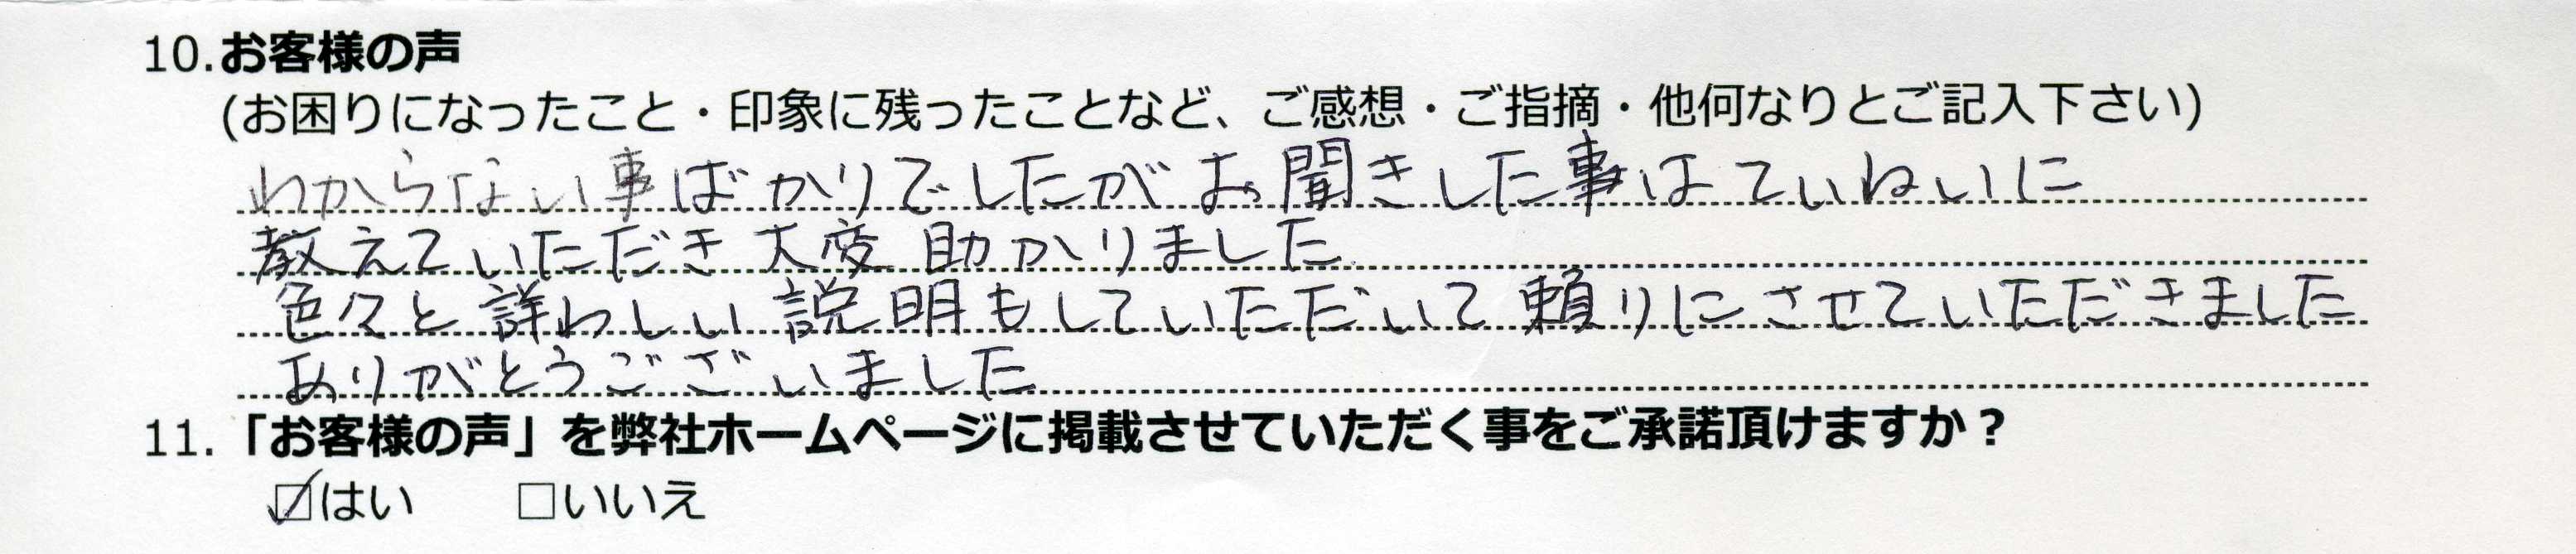 10.お客様の声
(お困りになったこと・印象に残ったことなど、ご感想・ご指摘・他何なりとご記入下さい)
わからない事ばかりでしたがお聞きした事はていねいに
教えていただき大変助かりました
色々と詳わしい説明もしていただいて頼りにさせていただきました
ありがとうございました
11.「お客様の声」を弊社ホームページに掲載させていただく事をご承諾頂けますか？
☑はい □いいえ